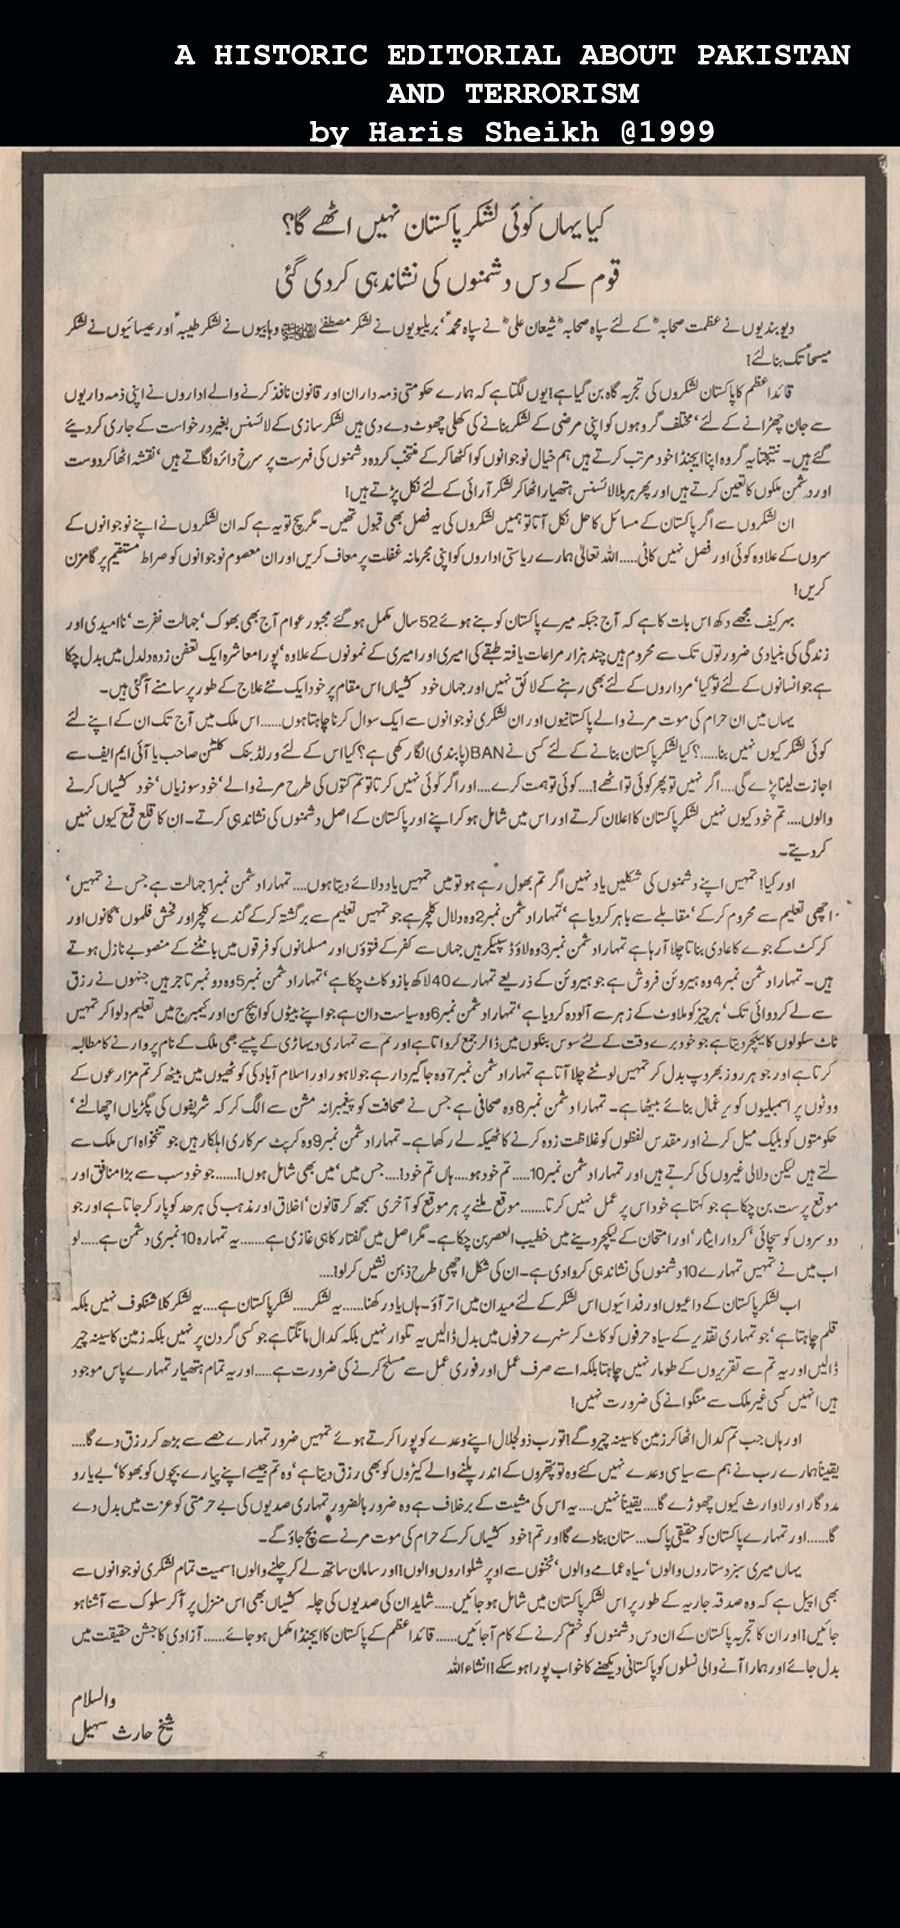 A HISTORIC EDITORIAL ABOUT PAKISTAN
AND TERRORISM
by Haris Sheikh @1999
کیا یہاں کوئی لشکر پاکستان نہیں اٹھے گا؟
قوم کے دس دشمنوں کی نشاندہی کردی گئی
دیوبندیوں نے عظمت صحابہؓ کے لئے سپاہ صحابہؓ شیعان علیؓ نے سپاہ محمدؐ، بریلویوں نے لشکر مصطفےٰ ﷺ وہابیوں نے لشکر طیبہؐ اور عیسائیوں نے لشکر
مسیحاؑ تک بنالئے!
قائداعظم کا پاکستان لشکروں کی تجربہ گاہ بن گیا ہے! یوں لگتا ہے کہ ہمارے حکومتی ذمہ داران اور قانون نافذ کرنے والے اداروں نے اپنی ذمہ داریوں
سے جان چھڑانے کے لئے، مختلف گروہوں کو اپنی مرضی کے لشکر بنانے کی کھلی چھوٹ دے دی ہیں لشکر سازی کے لائسنس بغیر درخواست کے جاری کردیئے
گئے ہیں۔ نتیجتاً یہ گروہ اپنا ایجنڈا خود مرتب کرتے ہیں ہم خیال نوجوانوں کو اکٹھا کرکے منتخب کردہ دشمنوں کی فہرست پر سرخ دائرہ لگاتے ہیں، نقشہ اٹھا کر دوست
اور دشمن ملکوں کا تعین کرتے ہیں اور پھر ہر بلالائسنس ہتھیار اٹھا کر لشکر آرائی کے لئے نکل پڑتے ہیں!
ان لشکروں سے اگر پاکستان کے مسائل کا حل نکل آتا تو ہمیں لشکروں کی یہ فصل بھی قبول تھیں۔ مگر سچ تو یہ ہے کہ ان لشکروں نے اپنے نوجوانوں کے
سروں کے علاوہ کوئی اور فصل نہیں کاٹی..... اللہ تعالیٰ ہمارے ریاستی اداروں کو اپنی مجرمانہ غفلت پر معاف کریں اور ان معصوم نوجوانوں کو صراط مستقیم پر گامزن
کریں!
بہرکیف مجھے دکھ اس بات کا ہے کہ آج جبکہ میرے پاکستان کو بنے ہوئے 52 سال مکمل ہوگئے مجبور عوام آج بھی بھوک، جہالت نفرت، ناامیدی اور
زندگی کی بنیادی ضرورتوں تک سے محروم ہیں چند ہزار مراعات یافتہ طبقے کی امیری اور امیری کے نمونوں کے علاوہ، پورا معاشرہ ایک تعفن زدہ دلدل میں بدل چکا
ہے جو انسانوں کے لئے تو کیا، مرداروں کے لئے بھی رہنے کے لائق نہیں اور جہاں خود کشیاں اس مقام پر خود ایک نئے علاج کے طور پر سامنے آگئی ہیں۔
یہاں میں ان حرام کی موت مرنے والے پاکستانیوں اور ان لشکری نوجوانوں سے ایک سوال کرنا چاہتا ہوں...... اس ملک میں آج تک ان کے اپنے لئے
کوئی لشکر کیوں نہیں بنا.....؟ کیا لشکر پاکستان بنانے کے لئے کسی نے BAN (پابندی) لگا رکھی ہے؟ کیا اس کے لئے ورلڈ بنک کلنٹن صاحب یا آئی ایم ایف سے
اجازت لینا پڑے گی.... اگر نہیں تو پھر کوئی تو اٹھے!.... کوئی تو ہمت کرے.... اور اگر کوئی نہیں کرتا تو تم کتوں کی طرح مرنے والے، خود سوزیاں، خود کشیاں کرنے
والوں.... تم خود کیوں نہیں لشکر پاکستان کا اعلان کرتے اور اس میں شامل ہوکر اپنے اور پاکستان کے اصل دشمنوں کی نشاندہی کرتے۔ ان کا قلع قمع کیوں نہیں
کردیتے۔
اور کیا! تمہیں اپنے دشمنوں کی شکلیں یاد نہیں اگر تم بھول رہے ہو تو میں تمہیں یاد دلائے دیتا ہوں.... تمہارا دشمن نمبر 1 جہالت ہے جس نے تمہیں،
اچھی تعلیم سے محروم کرکے، مقابلے سے باہر کردیا ہے، تمہارا دشمن نمبر 2 وہ دلال کلچر ہے جو تمہیں تعلیم سے برگشتہ کرکے گندے کلچر اور فحش فلموں، گانوں اور
کرکٹ کے جوے کا عادی بناتا چلا آرہا ہے تمہارا دشمن نمبر 3 وہ لاؤڈ سپیکر ہیں جہاں سے کفر کے فتوؤں اور مسلمانوں کو فرقوں میں بانٹنے کے منصوبے نازل ہوتے
ہیں۔ تمہارا دشمن نمبر 4 وہ ہیروئن فروش ہے جو ہیروئن کے ذریعے تمہارے 40 لاکھ بازو کاٹ چکا ہے، تمہارا دشمن نمبر 5 وہ دو نمبر تاجر ہیں جنہوں نے رزق
سے لے کر دوائی تک، ہر چیز کو ملاوٹ کے زہر سے آلودہ کردیا ہے، تمہارا دشمن نمبر 6 وہ سیاست دان ہے جو اپنے بیٹوں کو ایچی سن اور کیمبرج میں تعلیم دلوا کر تمہیں
ٹاٹ سکولوں کا لیکچر دیتا ہے جو خود برے وقت کے لئے سوس بنکوں میں ڈالر جمع کرواتا ہے اور تم سے تمہاری دیہاڑی کے پیسے بھی ملک کے نام پر وارنے کا مطالبہ
کرتا ہے اور جو ہر روز بھردپ بدل کر تمہیں لوٹنے چلا آتا ہے تمہارا دشمن نمبر 7 وہ جاگیردار ہے جو لاہور اور اسلام آباد کی کوٹھیوں میں بیٹھ کر تم مزارعوں کے
ووٹوں پر اسمبلیوں کو یرغمال بنائے بیٹھا ہے۔ تمہارا دشمن نمبر 8 وہ صحافی ہے جس نے صحافت کو پیغمبرانہ مشن سے الگ کرکہ شریفوں کی پگڑیاں اچھالنے،
حکومتوں کو بلیک میل کرنے اور مقدس لفظوں کو غلاظت زدہ کرنے کا ٹھیکہ لے رکھا ہے۔ تمہارا دشمن نمبر 9 وہ کرپٹ سرکاری اہلکار ہیں جو تنخواہ اس ملک سے
لتے ہیں لیکن دلالی غیروں کی کرتے ہیں اور تمہارا دشمن نمبر 10.... تم خود ہو.... ہاں تم خود!.... جس میں، میں بھی شامل ہوں!...... جو خود سب سے بڑا منافق اور
موقع پرست بن چکا ہے جو کہتا ہے خود اس پر عمل نہیں کرتا...... موقع ملنے پر ہر موقع کو آخری سمجھ کر قانون، اخلاق اور مذہب کی ہر حد کو پار کر جاتا ہے اور جو
دوسروں کو سچائی، کردار ایثار، اور امتحان کے لیکچر دینے میں خطیب العصر بن چکا ہے۔ مگر اصل میں گفتار کا ہی غازی ہے...... یہ تمہارہ 10 نمبری دشمن ہے..... لو
اب میں نے تمہیں تمہارے 10 دشمنوں کی نشاندہی کروا دی ہے۔ ان کی شکل اچھی طرح ذہن نشیں کرلو!....
اب لشکر پاکستان کے داعیوں اور فدائیوں اس لشکر کے لئے میدان میں اتر آؤ۔ ہاں یاد رکھنا..... یہ لشکر.... لشکر پاکستان ہے.... یہ لشکر کلاشنکوف نہیں بلکہ
قلم چاہتا ہے، جو تمہاری تقدیر کے سیاہ حرفوں کو کاٹ کر سنہرے حرفوں میں بدل ڈالیں یہ تلوار نہیں بلکہ کدال مانگتا ہے جو کسی گردن پر نہیں بلکہ زمین کا سینہ چیر
ڈالیں اور یہ تم سے تقریروں کے طومار نہیں چاہتا بلکہ اسے صرف عمل اور فوری عمل سے مسلح کرنے کی ضرورت ہے..... اور یہ تمام ہتھیار تمہارے پاس موجود
ہیں انہیں کسی غیر ملک سے منگوانے کی ضرورت نہیں!
اور ہاں جب تم کدال اٹھا کر زمین کا سینہ چیرو گے! تو رب ذوالجلال اپنے وعدے کو پورا کرتے ہوئے تمہیں ضرور تمہارے حصے سے بڑھ کر رزق دے گا....
یقیناً ہمارے رب نے ہم سے سیاسی وعدے نہیں کئے وہ تو پتھروں کے اندر پلنے والے کیڑوں کو بھی رزق دیتا ہے، وہ تم جیسے اپنے پیارے بچوں کو بھوکا، بے یارو
مددگار اور لاوارث کیوں چھوڑے گا.... یقیناً نہیں.... یہ اس کی مشیت کے برخلاف ہے وہ ضرور بالضرور تمہاری صدیوں کی بے حرمتی کو عزت میں بدل دے
گا..... اور تمہارے پاکستان کو حقیقی پاک... ستان بنا دے گا اور تم! خود کشیاں کرکے حرام کی موت مرنے سے بچ جاؤ گے۔
یہاں میری سبز دستاروں والوں، سیاہ عمامے والوں، ٹخنوں سے اوپر شلواروں والوں! اور سامان ساتھ لے کر چلنے والوں! سمیت تمام لشکری نوجوانوں سے
بھی اپیل ہے کہ وہ صدقہ جاریہ کے طور پر اس لشکر پاکستان میں شامل ہو جائیں.... شاید ان کی صدیوں کی چلہ کشیاں بھی اس منزل پر آکر سلوک سے آشنا ہو
جائیں! اور ان کا تجربہ پاکستان کے ان دس دشمنوں کو ختم کرنے کے کام آجائیں...... قائداعظم کے پاکستان کا ایجنڈا مکمل ہو جائے...... آزادی کا جشن حقیقت میں
بدل جائے اور ہمارا آنے والی نسلوں کو پاکستانی دیکھنے کا خواب پورا ہو سکے! انشاء اللہ
والسلام
شیخ حارث سہیل